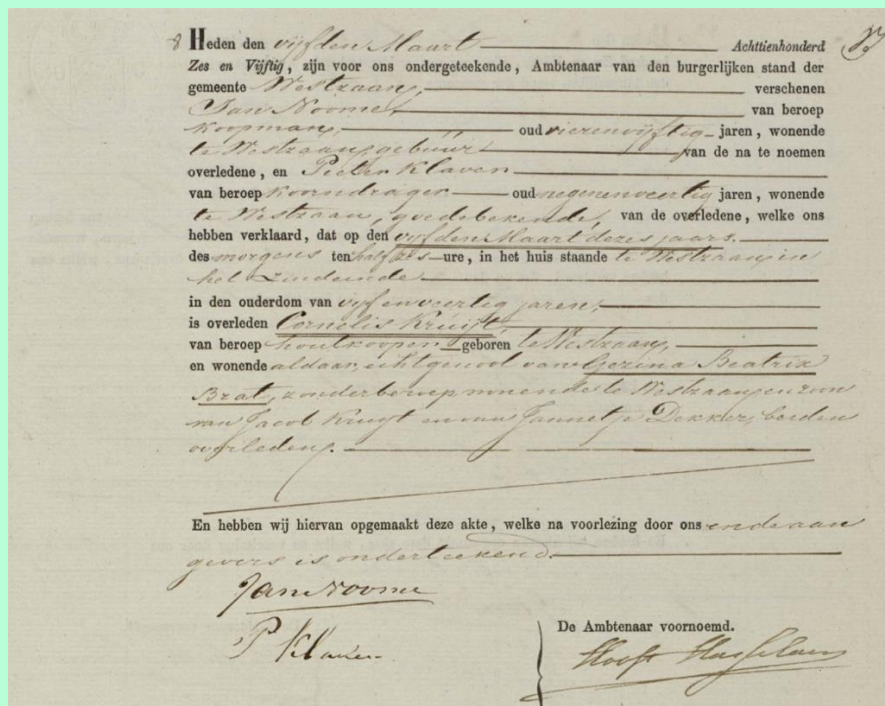 8 Heden den vijfden Maart Achttienhonderd
Zes en Vijftig, zijn voor ons ondergeteekende, Ambtenaar van den burgerlijken stand der
gemeente Westzaan, verschenen
Jan Noome, van beroep
koopman, oud vierenvijftig jaren, wonende
te Westzaan, gebuur van de na te noemen
overledene, en Pieter Klaver
van beroep koorndrager oud negenenveertig jaren, wonende
te Westzaan, goedebekende, van de overledene, welke ons
hebben verklaard, dat op den vijfden Maart dezes jaars.
des morgens ten half zes ure, in het huis staande te Westzaan in
het zuideinde
in den ouderdom van vijf en veertig jaren,
is overleden Cornelis Kruijt,
van beroep houtkooper geboren te Westzaan,
en wonende aldaar, echtgenoot van Gezina Beatrix
Brat, zonder beroep wonende te Westzaan, en zoon
van Jacob Kruijt en van Jannetje Dekker, beiden
overleden.
En hebben wij hiervan opgemaakt deze akte, welke na voorlezing door ons en de aan
gevers is onderteekend.
Jan Noome
P Klaver
De Ambtenaar voornoemd.
Hooft